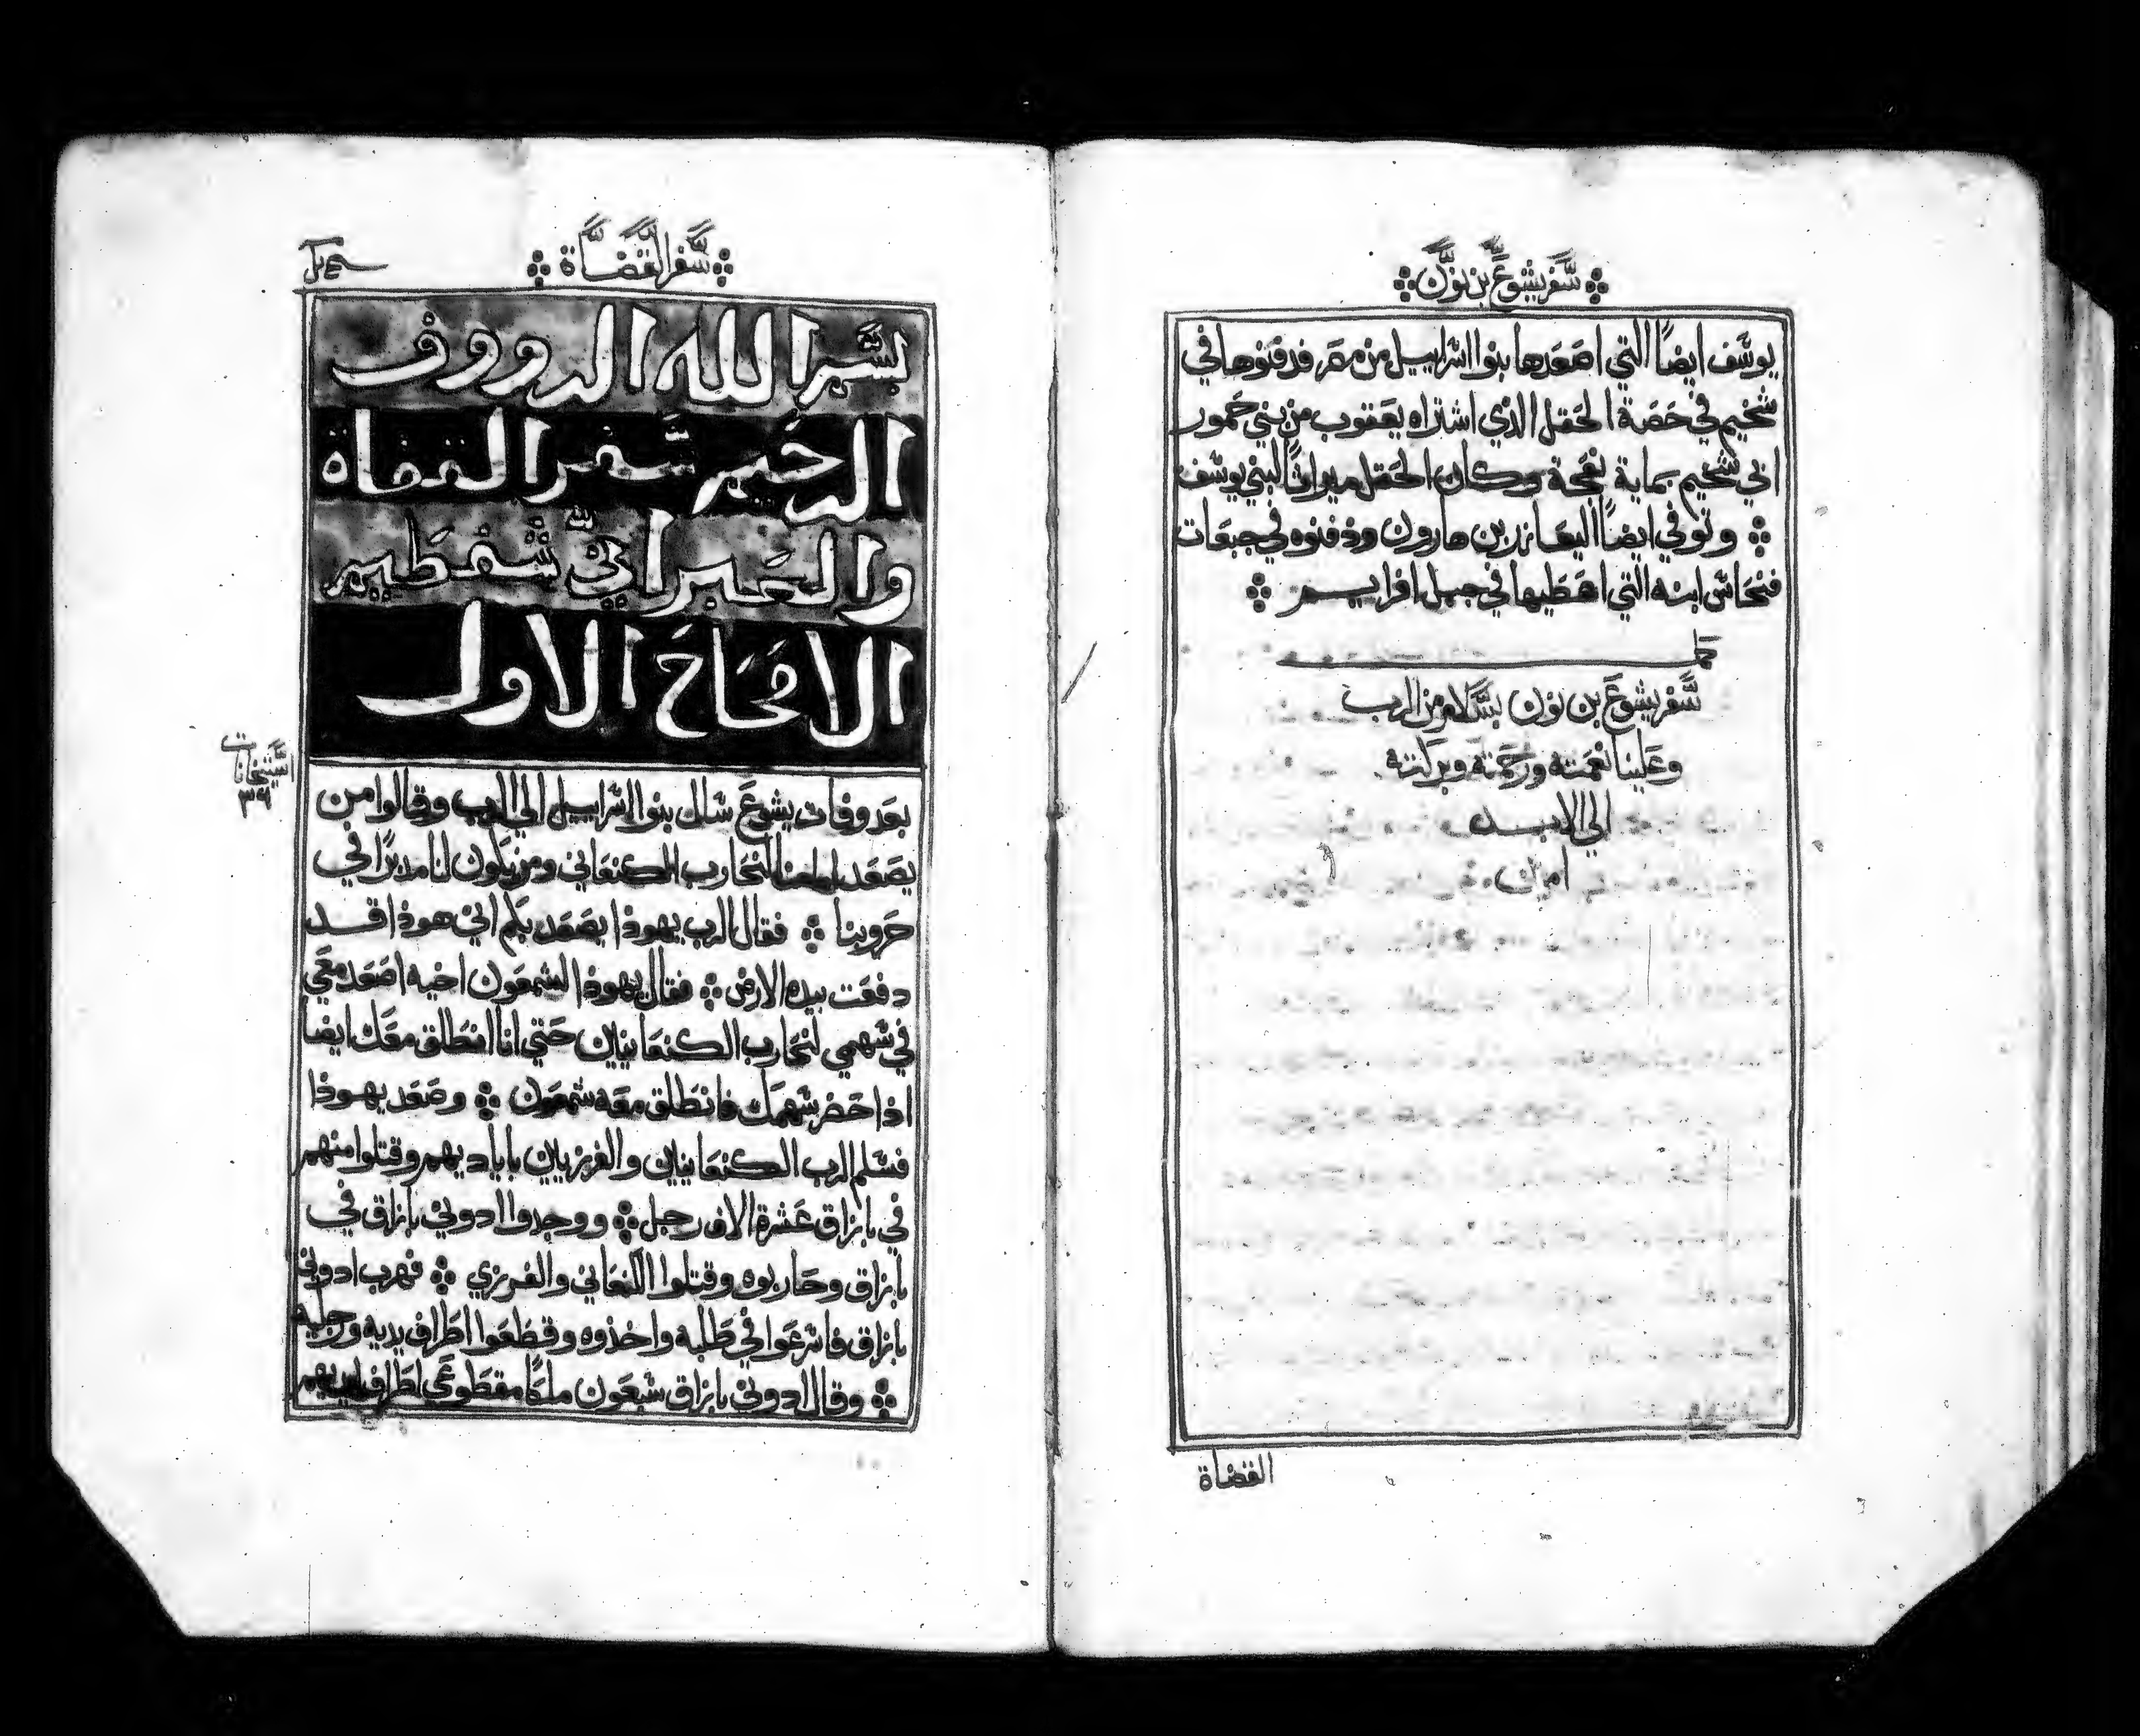 سفر يشوع بن نون
يوسف ايضاً التي اصعدها بنوا اسراييل من مصر فدفنوها في
شخيم في حصة الحقل الذي اشتراه يعقوب من بني حمور
ابي شخيم بماية نعجة وكان الحقل ميراثاً لبني يوسف
وتوفي ايضاً اليعازر بن هارون ودفنوه في جبعات
فنحاس ابنه التي اعطيها في جبل افراييم
كمل
سفر يشوع بن نون بسلام من الرب
وعلينا نعمته ورحمته وبركته
الي الابد
امين
القضاة
سفر القضاة
بسم الله الرووف
الرحيم سفر القضاة
والعبراني شفطيم
الاصحاح الاول
بعد وفات يشوع سال بنوا اسراييل الي الرب وقالوا من
يصعد امامنا لنحارب الكنعاني ومن يكون لنا مدبراً في
حروبنا فقال الرب يهوذا يصعد بكم اني هوذا قد
دفعت بيده الارض فقال يهوذا لشمعون اخيه اصعد معي
في سهمي لنحارب الكنعانيين حتي انا انطلق معك ايضا
اذا حضر سهمك فانطلق معه شمعون وصعد يهوذا
فسلم الرب الكنعانيين والفرزيين باياديهم وقتلوا منهم
في بازاق عشرة الاف رجل ووجدوا ادوني بازاق في
بازاق وحاربوه وقتلوا الكنعاني والفرزي فهرب ادوني
بازاق فاسرعوا في طلبه واخذوه وقطعوا اطراف يديه ورجليه
وقال ادوني بازاق سبعون ملكاً مقطوعي اطراف
٣٩